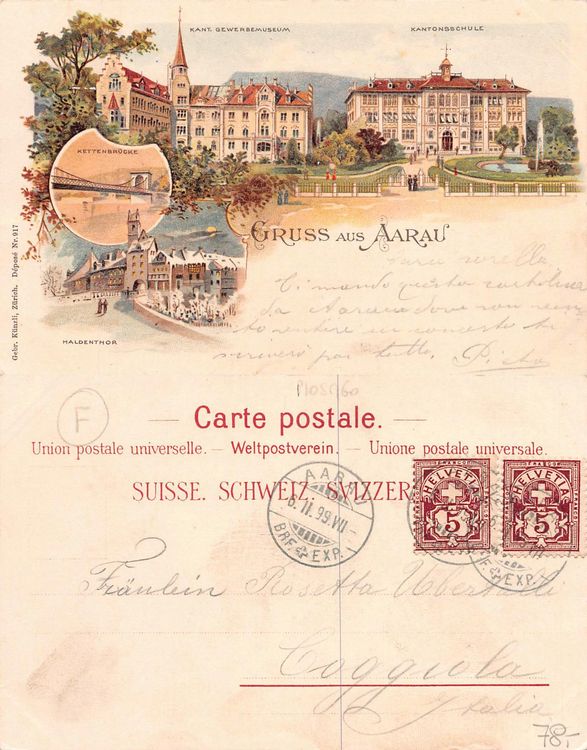 KANT. GEWERBEMUSEUM
KANTONSSCHULE
KETTENBRÜCKE
GRUSS AUS AARAU
HALDENTHOR
Gebr. Künzli, Zürich. Déposé Nr. 917
Cara sorella
Ti mando questa cartolina
da Aarau dove son venu
to sentire un concerto ti
scriverò poi tutto. 
F
Carte postale.
Union postale universelle. — Weltpostverein. — Unione postale universale.
SUISSE. SCHWEIZ. SVIZZERA
AARAU
6. II. 99. VII
BRF. EXP.
HELVETIA
FRANCO
5
HELVETIA
FRANCO
5
F. EXP.
Fräulein Rosetta
Coggiola
Italia
78.-